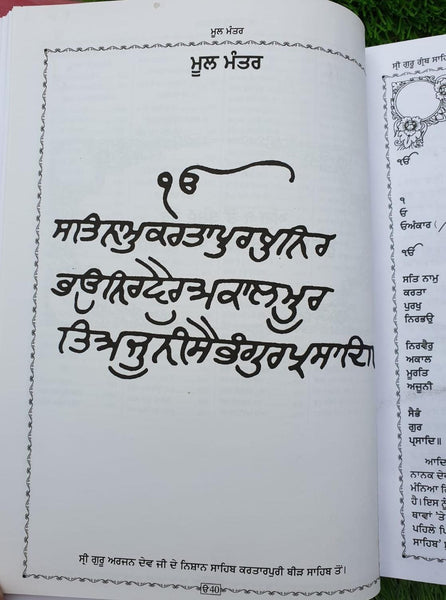 ਮੂਲ ਮੰਤਰ
ਮੂਲ ਮੰਤਰ
ੴ
ਸਤਿਨਾਮੁਕਰਤਾਪੁਰਖੁਨਿਰ
ਭਉਨਿਰਵੈਰੁਅਕਾਲਮੂਰ
ਤਿਅਜੂਨੀਸੈਭੰਗੁਰਪ੍ਰਸਾਦਿ॥
ਸ੍ਰੀ ਗੁਰੂ ਅਰਜਨ ਦੇਵ ਜੀ ਦੇ ਨਿਸ਼ਾਨ ਸਾਹਿਬ ਕਰਤਾਰਪੁਰੀ ਬੀੜ ਸਾਹਿਬ ਤੋਂ।
ੳ40
ਸ੍ਰੀ ਗੁਰੂ ਗ੍ਰੰਥ
ੴ
੧
ਓ
ਓਅੰਕਾਰ
ੴ
ਸਤਿ ਨਾਮੁ
ਕਰਤਾ
ਪੁਰਖੁ
ਨਿਰਭਉ
ਨਿਰਵੈਰੁ
ਅਕਾਲ
ਮੂਰਤਿ
ਅਜੂਨੀ
ਸੈਭੰ
ਗੁਰ
ਪ੍ਰਸਾਦਿ॥
ਆਦਿ
ਨਾਨਕ ਦੇਵ
ਮੰਨਿਆ
ਹੈ।ਇਸ ਨੂੰ
ਥਾਵਾਂ 'ਤੇ
ਪਹਿਲੇ
ਸਾਹਿਬ'